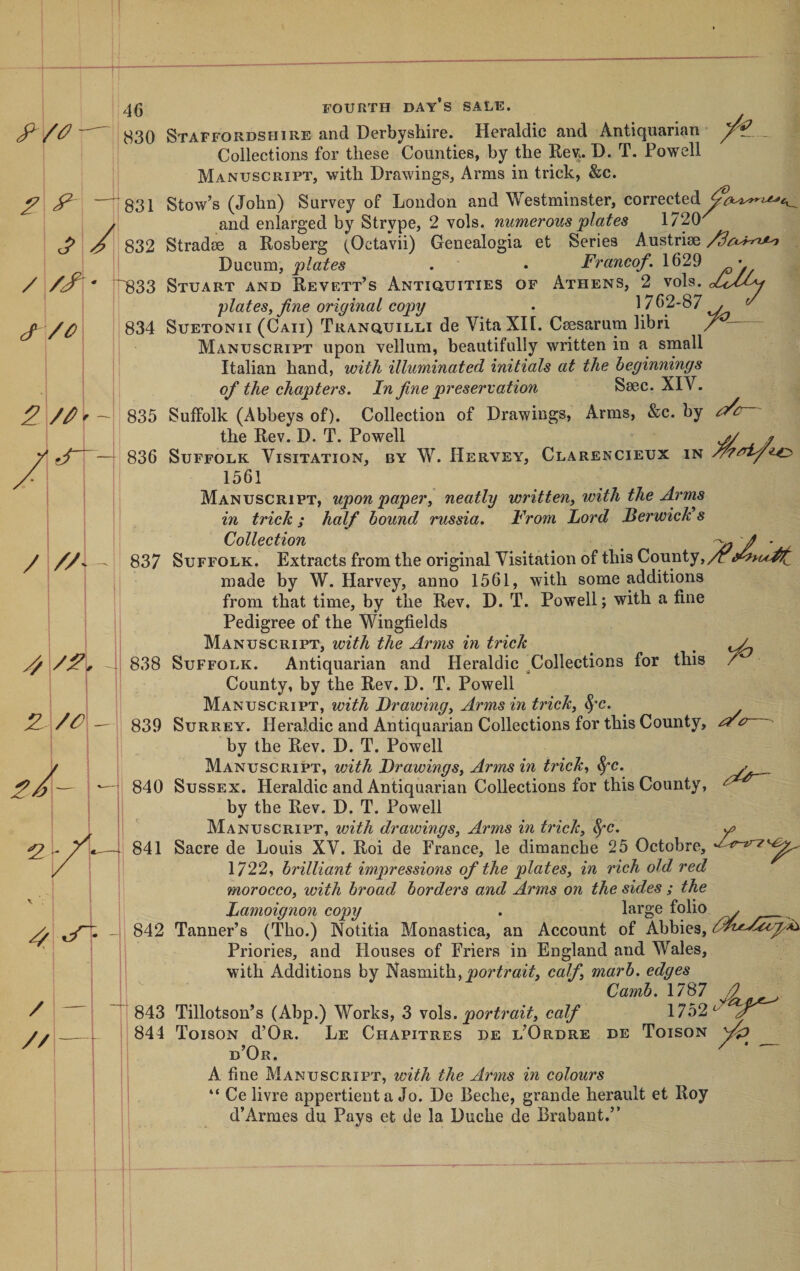 46 FOURTH DAY'S SALE.
830 STAFFORDSHIRE and Derbyshire. Heraldic and Antiquarian
Collections for these Counties, by the Rev. D. T. Powell
MANUSCRIPT, with Drawings, Arms in trick, &c.
831 Stow's (John) Survey of London and Westminster, corrected
and enlarged by Strype, 2 vols. numerous plates 1720
832 Stradæ a Rosberg (Octavii) Genealogia et Series Austriæ
Ducum, plates . . Francof. 1629
833 STUART AND REVETT'S ANTIQUITIES OF ATHENS, 2 vols.
plates, fine original copy . 1762-87
834 SUETONII (CAII) TRANQUILLI de Vita XII. Cæsarum libri
MANUSCRIPT upon vellum, beautifully written in a small
Italian hand, with illuminated initials at the beginnings
of the chapters. In fine preservation Sæc. XIV.
835 Suffolk (Abbeys of). Collection of Drawings, Arms, &c. by
the Rev. D. T. Powell
836 SUFFOLK VISITATION, BY W. HERVEY, CLARENCIEUX IN
1561
MANUSCRIPT, upon paper, neatly written, with the Arms
in trick; half bound russia. From Lord Berwick's
Collection
837 SUFFOLK. Extracts from the original Visitation of this County,
made by W. Harvey, anno 1561, with some additions
from that time, by the Rev. D. T. Powell; with a fine
Pedigree of the Wingfields
MANUSCRIPT, with the Arms in trick
838 SUFFOLK. Antiquarian and Heraldic Collections for this
County, by the Rev. D. T. Powell
MANUSCRIPT, with Drawing, Arms in trick, &c.
839 SURREY. Heraldic and Antiquarian Collections for this County,
by the Rev. D. T. Powell
MANUSCRIPT, with Drawings, Arms in trick, &c.
840 SUSSEX. Heraldic and Antiquarian Collections for this County,
by the Rev. D. T. Powell
MANUSCRIPT, with drawings, Arms in trick, &c.
841 Sacre de Louis XV. Roi de France, le dimanche 25 Octobre,
1722, brilliant impressions of the plates, in rich old red
morocco, with broad borders and Arms on the sides; the
Lamoignon copy . large folio
842 Tanner's (Tho.) Notitia Monastica, an Account of Abbies,
Priories, and Houses of Friers in England and Wales,
with Additions by Nasmith, portrait, calf, marb. edges
Camb. 1787
843 Tillotson's (Abp.) Works, 3 vols. portrait, calf 1752
844 TOISON D'OR. LE CHAPITRES DE L'ORDRE DE TOISON
D'OR.
A fine MANUSCRIPT, with the Arms in colours
“ Ce livre appertient a Jo. De Beche, grande herault et Roy
d'Armes du Pays et de la Duche de Brabant.”